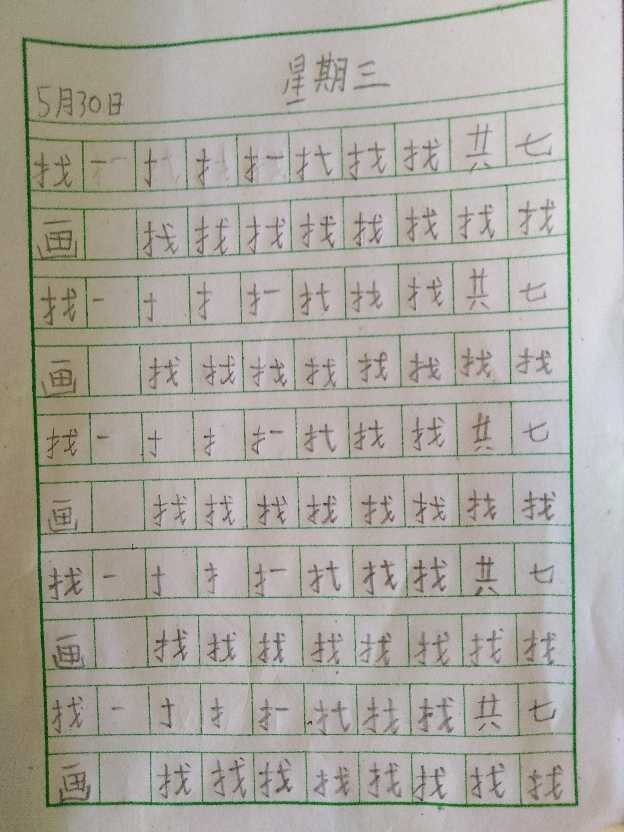 5月30日 星期三
找一十扌扌一扌七找找共七
画 找找找找找找找找
找一十扌扌一扌七找找共七
画 找找找找找找找找
找一十扌扌一扌七找找共七
画 找找找找找找找找
找一十扌扌一扌七找找共七
画 找找找找找找找找
找一十扌扌一扌七找找共七
画 找找找找找找找找